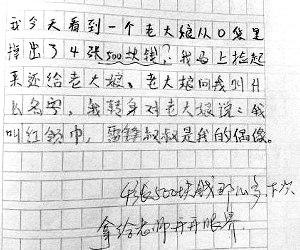 我今天看到一个老大娘从口袋里
掉出了4张500块钱，我马上捡起
来还给老大娘。老大娘问我叫什
么名字，我转身对老大娘说：我
叫红领巾，雷锋叔叔是我的偶像。
4张500块钱那么多，下次
拿给老师开开眼界。